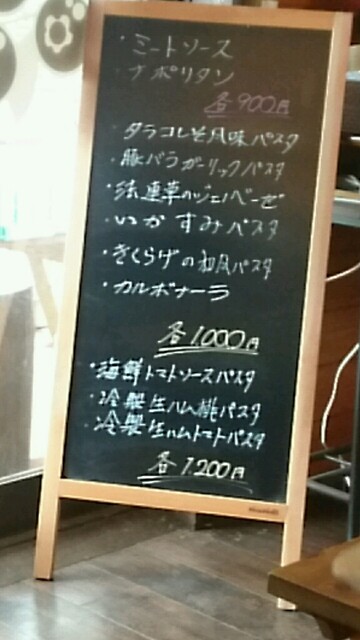 ・ミートソース
・ナポリタン
各900円
・タラコしそ風味パスタ
・豚バラガーリックパスタ
・法蓮草のジェノベーゼ
・いかすみパスタ
・きくらげの和風パスタ
・カルボナーラ
各1000円
・海鮮トマトソースパスタ
・冷製生ハム桃パスタ
・冷製生ハムトマトパスタ
各1200円